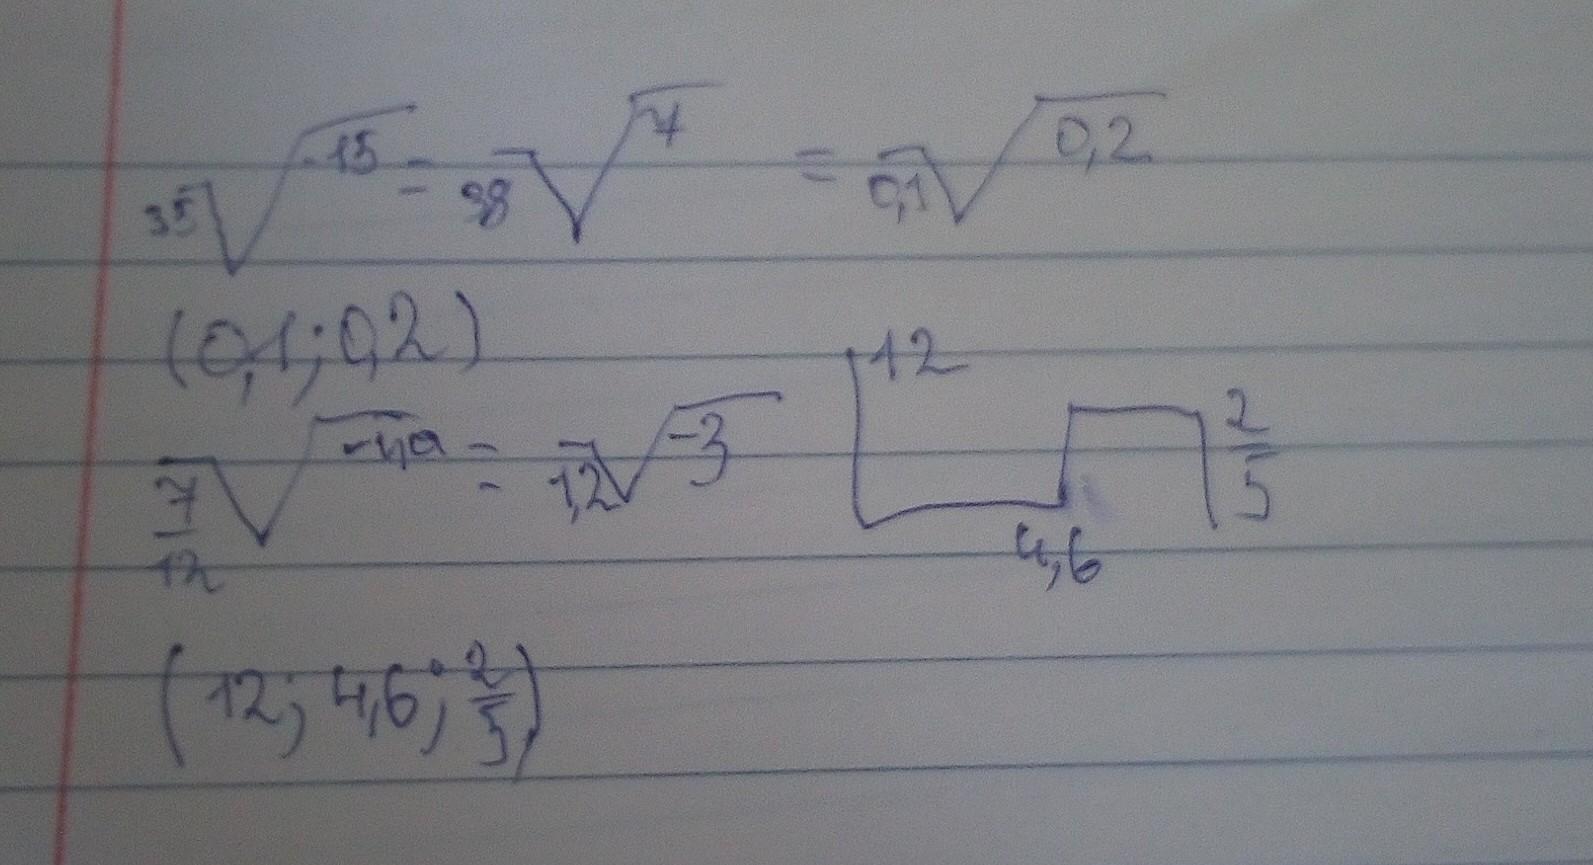 35√-15 = 98√7 = 0,1√0,2
(0,1; 0,2)
7/12 √ = 1,2√-3 12 4,6 2/5
(12; 4,6; 2/5)